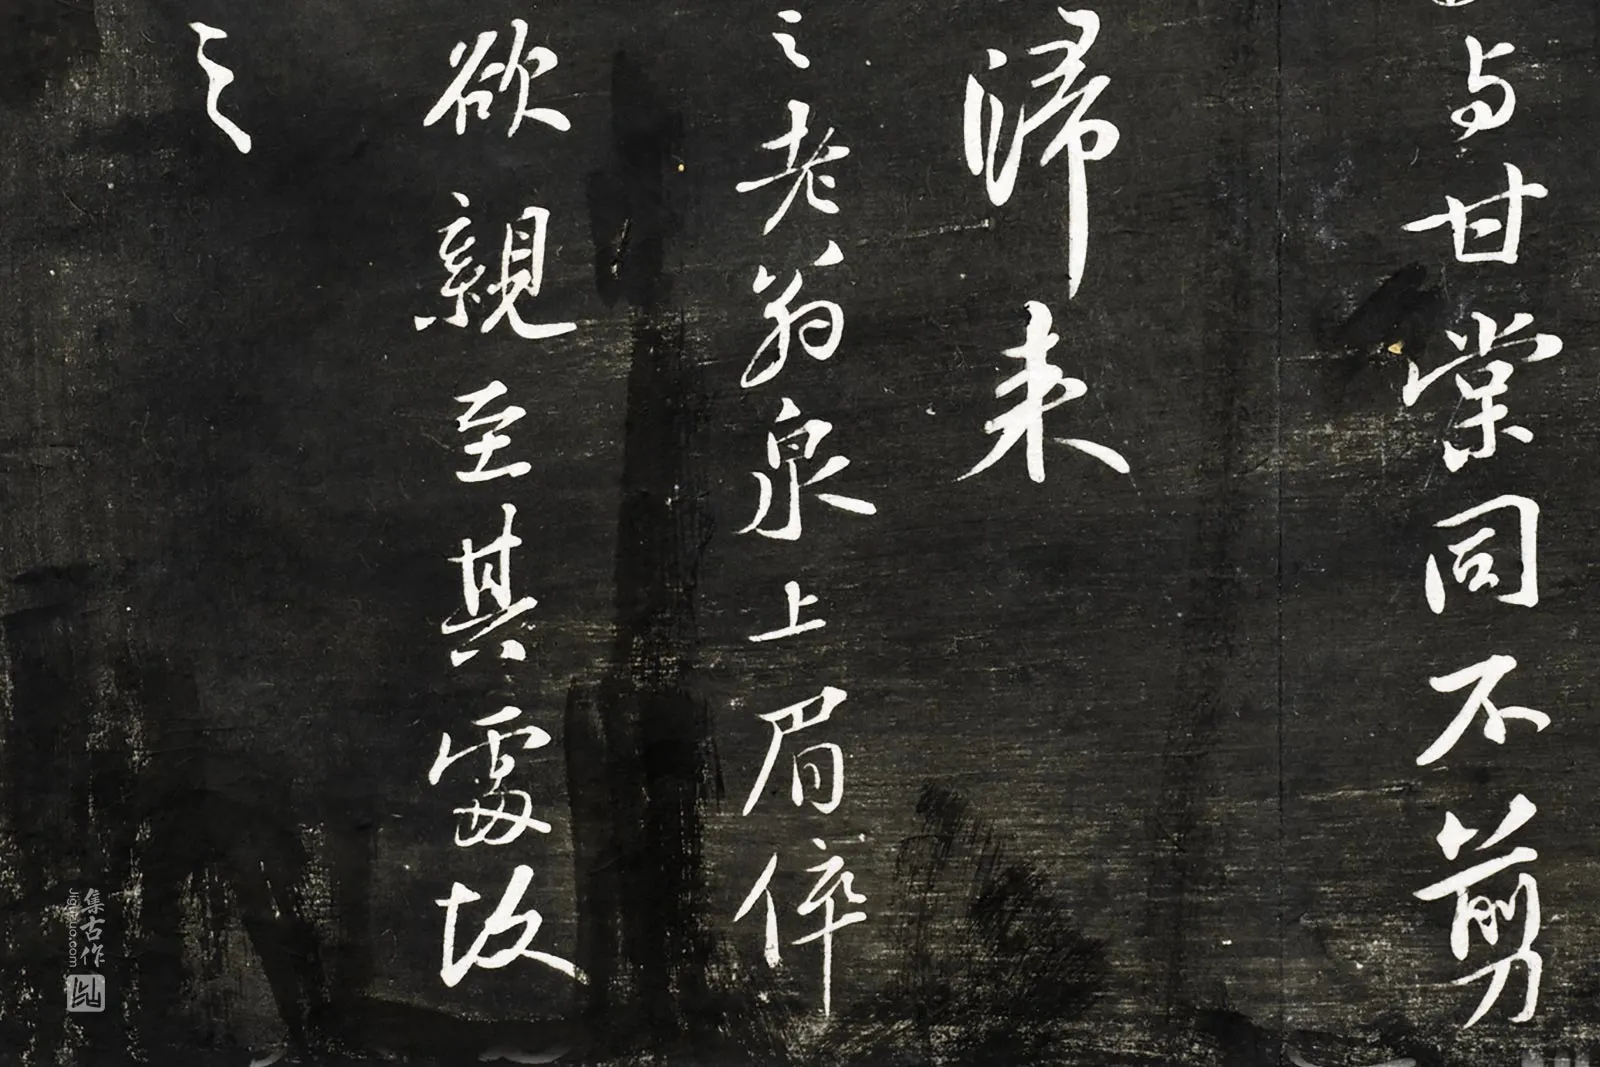 与甘棠同不剪
歸来
之老翁泉上眉倅
欲親至其處故
之
集古作
jiguzuo.com